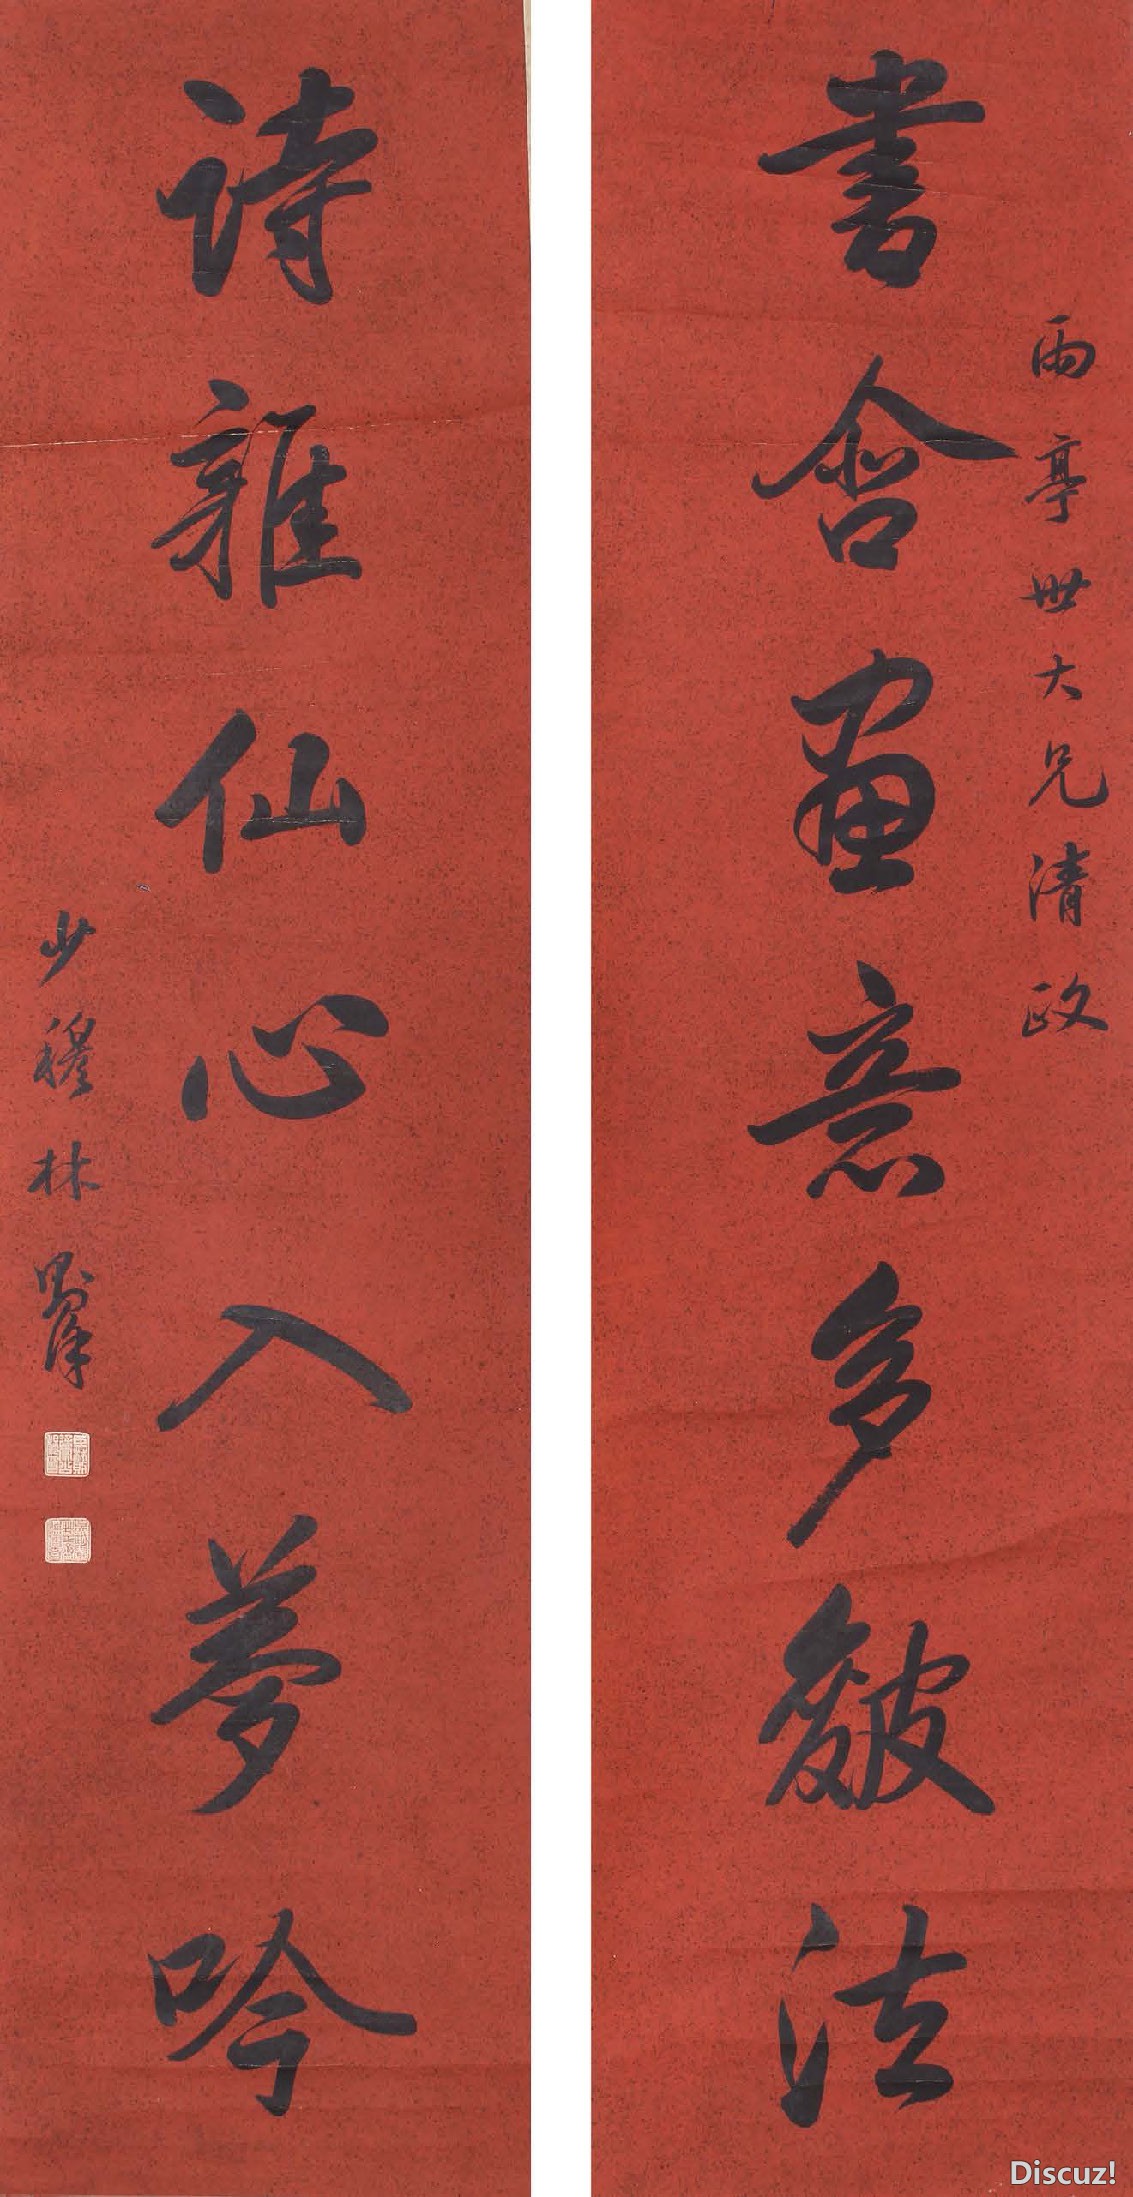 雨亭世大兄清政
書含畫意多皴法
詩雜仙心入夢吟
少穆林則徐
Discuz!